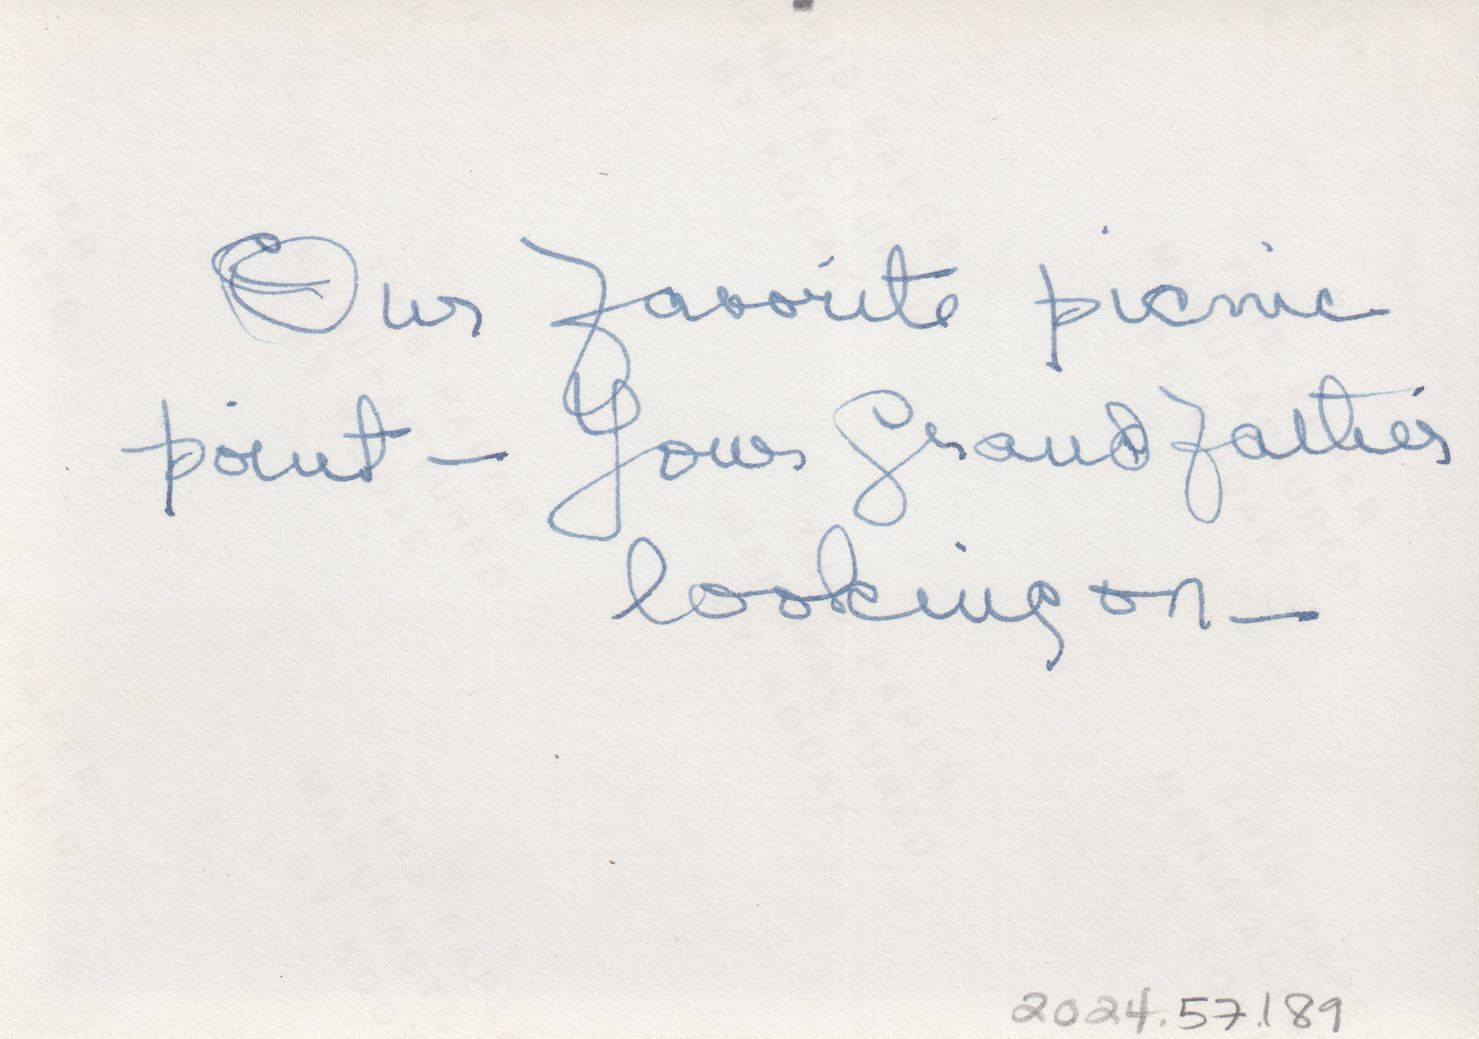 Our favorite picnic
point — Your Grandfather
looking on —
2024.57.189